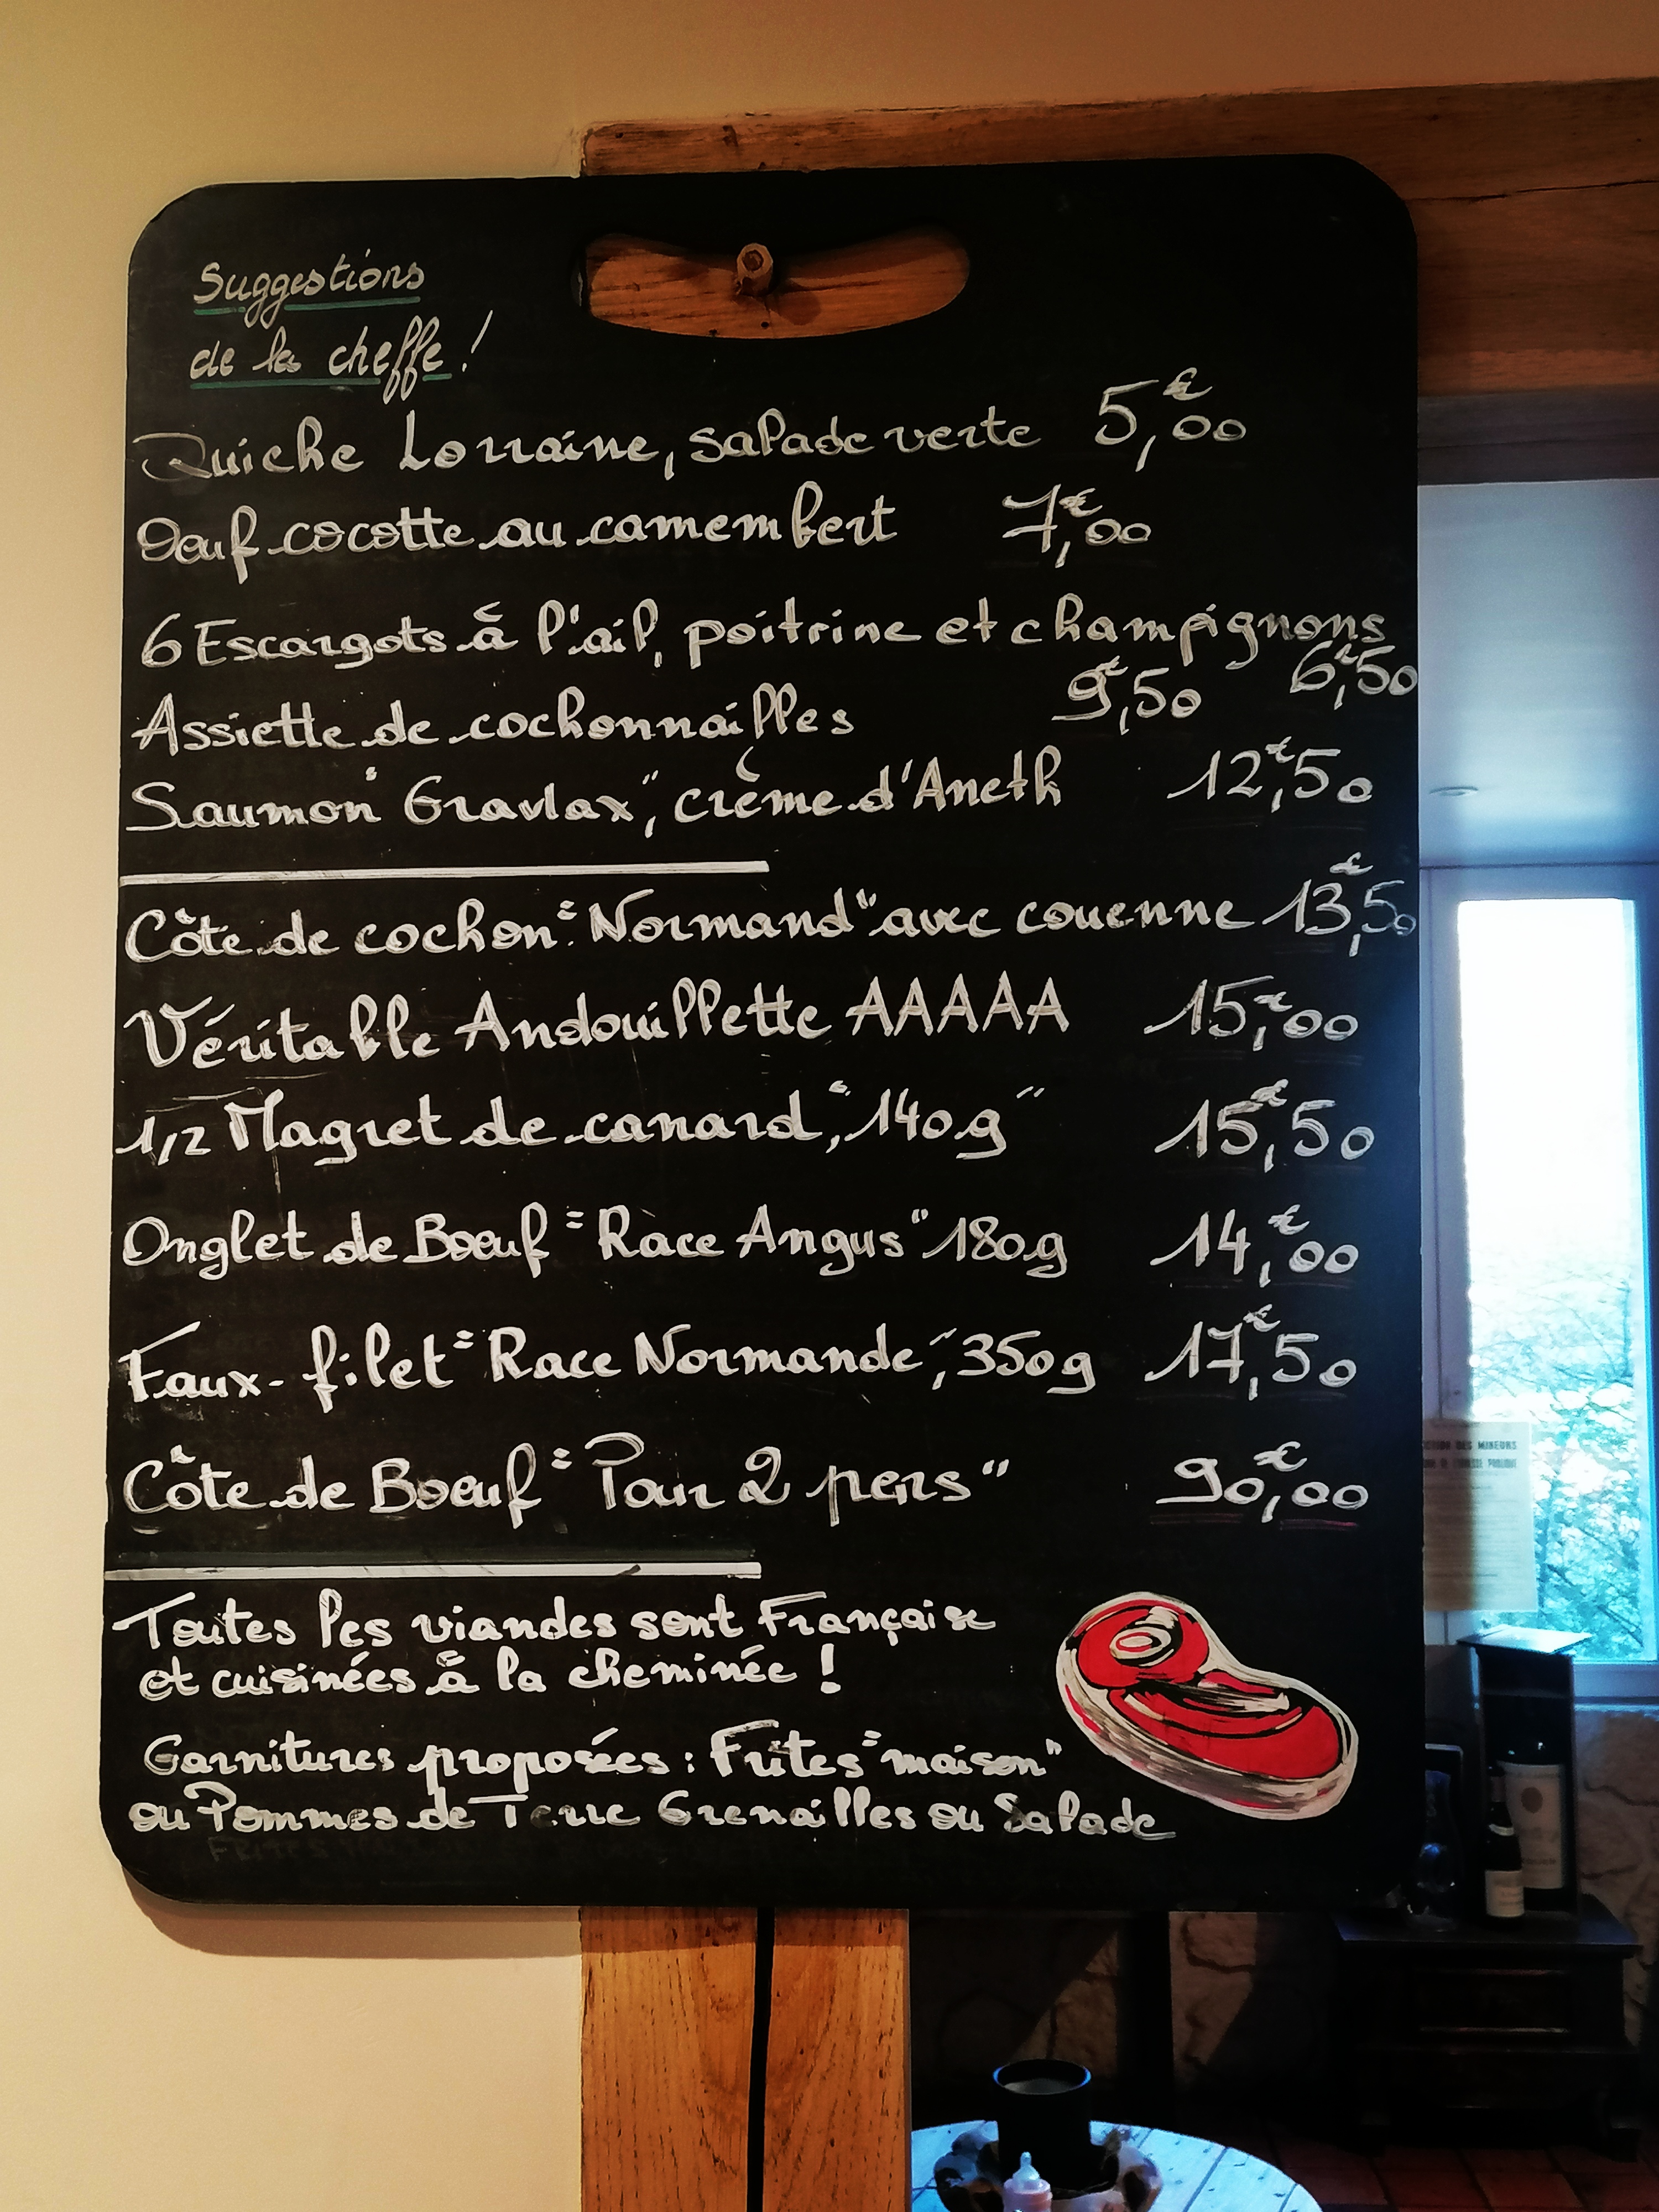 Suggestions
de la cheffe !
Quiche Lorraine, salade verte 5,00€
Oeuf cocotte au camembert 7,00€
6 Escargots à l'ail, poitrine et champignons
6,50€
Assiette de cochonnailles 9,50€
Saumon "Gravlax", crème d'Aneth 12,50€
Côte de cochon "Normand" avec couenne 13,50€
Véritable Andouillette AAAAA 15,00€
1/2 Magret de canard, "140g" 15,50€
Onglet de Boeuf "Race Angus" 180g 14,00€
Faux-filet "Race Normande", 350g 17,50€
Côte de Boeuf "Pour 2 pers" 90,00€
Toutes les viandes sont Française
et cuisinées à la cheminée !
Garnitures proposées : Frites "maison"
ou Pommes de Terre Grenailles ou Salade
DES MINEURS